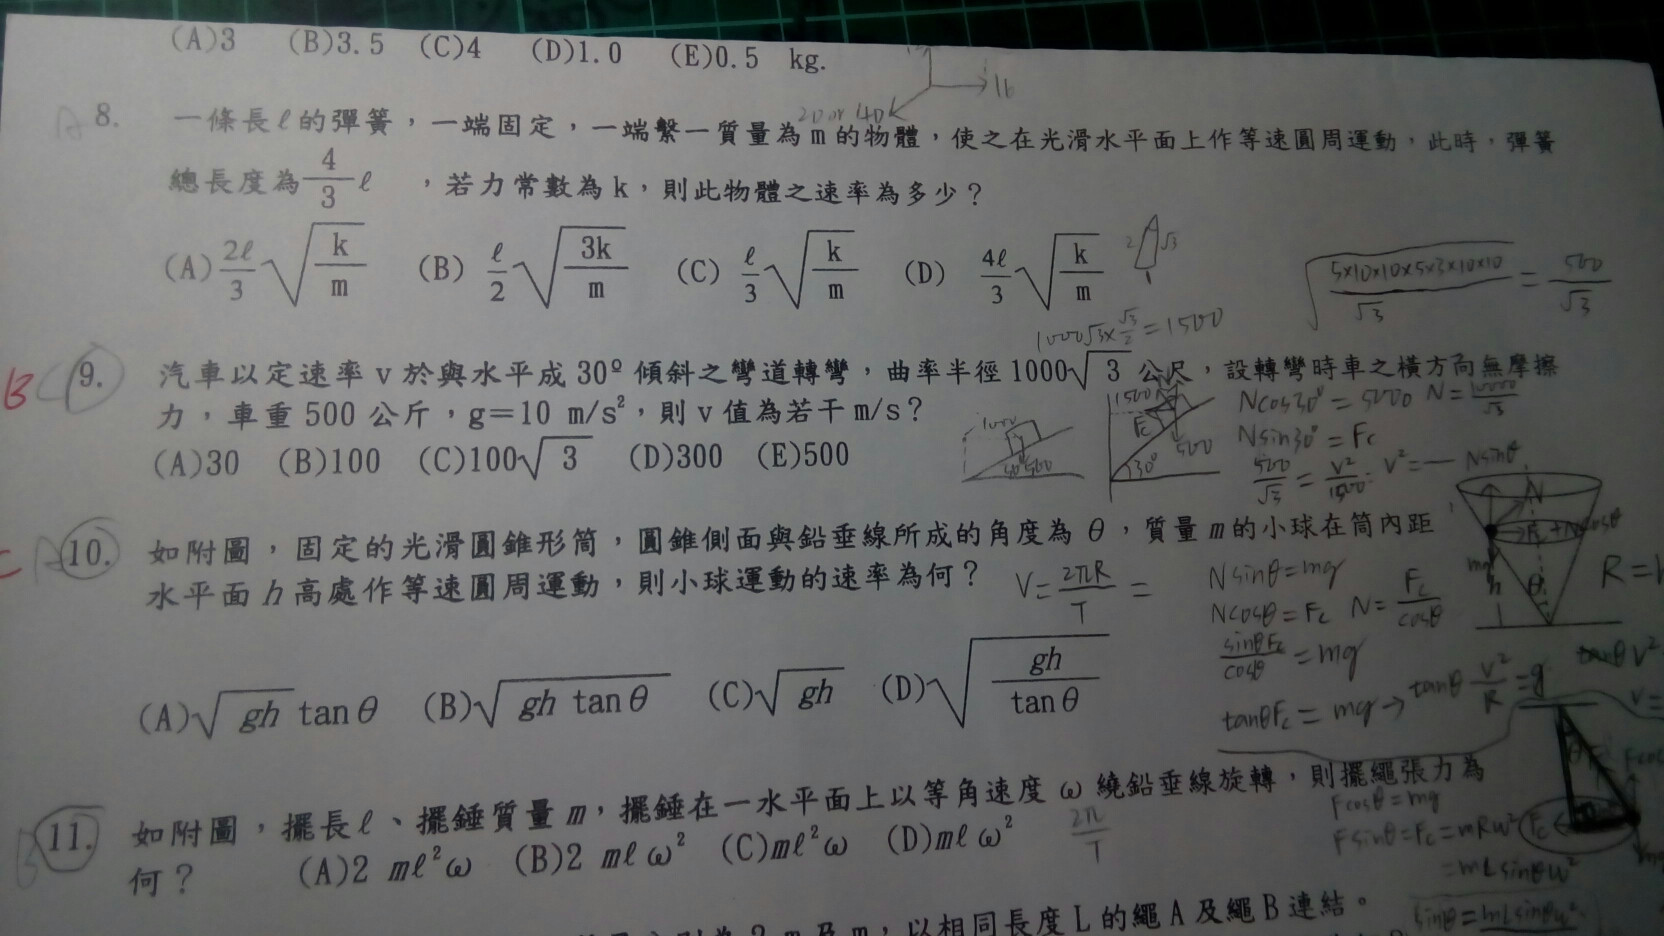 (A)3 (B)3.5 (C)4 (D)1.0 (E)0.5 kg.
16
20 or 40
A 8. 一條長ℓ的彈簧，一端固定，一端繫一質量為m的物體，使之在光滑水平面上作等速圓周運動，此時，彈簧
總長度為4/3 ℓ ，若力常數為k，則此物體之速率為多少？
(A) 2ℓ/3 √(k/m) (B) ℓ/2 √(3k/m) (C) ℓ/3 √(k/m) (D) 4ℓ/3 √(k/m)
2 √3 1
√(5×10×10×5×3×10×10/√3) = 500/√3
1000√3×√3/2=1500
B C 9. 汽車以定速率v於與水平成30º傾斜之彎道轉彎，曲率半徑1000√3公尺，設轉彎時車之橫方向無摩擦
力，車重500公斤，g＝10 m/s²，則v值為若干m/s？
(A)30 (B)100 (C)100√3 (D)300 (E)500
1500 Fc 500 30°
Ncos30°=5000 N=10000/√3
Nsin30°=Fc
500/√3 = V²/1500 V²=—
C A 10. 如附圖，固定的光滑圓錐形筒，圓錐側面與鉛垂線所成的角度為θ，質量m的小球在筒內距
水平面h高處作等速圓周運動，則小球運動的速率為何？
V=2πR/T =
(A)√gh tanθ (B)√(gh tanθ) (C)√gh (D)√(gh/tanθ)
Nsinθ
N
mg h θ
Nsinθ=mg
Ncosθ=Fc N=Fc/cosθ
sinθFc/cosθ =mg
tanθFc=mg→tanθ V²/R=g
R=
tanθV²
V=
11. 如附圖，擺長ℓ、擺錘質量m，擺錘在一水平面上以等角速度ω繞鉛垂線旋轉，則擺繩張力為
何？ (A)2 mℓ²ω (B)2 mℓω² (C)mℓ²ω (D)mℓω²
2π/T
θ Fc
Fcosθ=mg
Fsinθ=Fc=mRω²
=mLsinθω²
sinθ=mLsinθω²
2 m及m，以相同長度L的繩A及繩B連結。